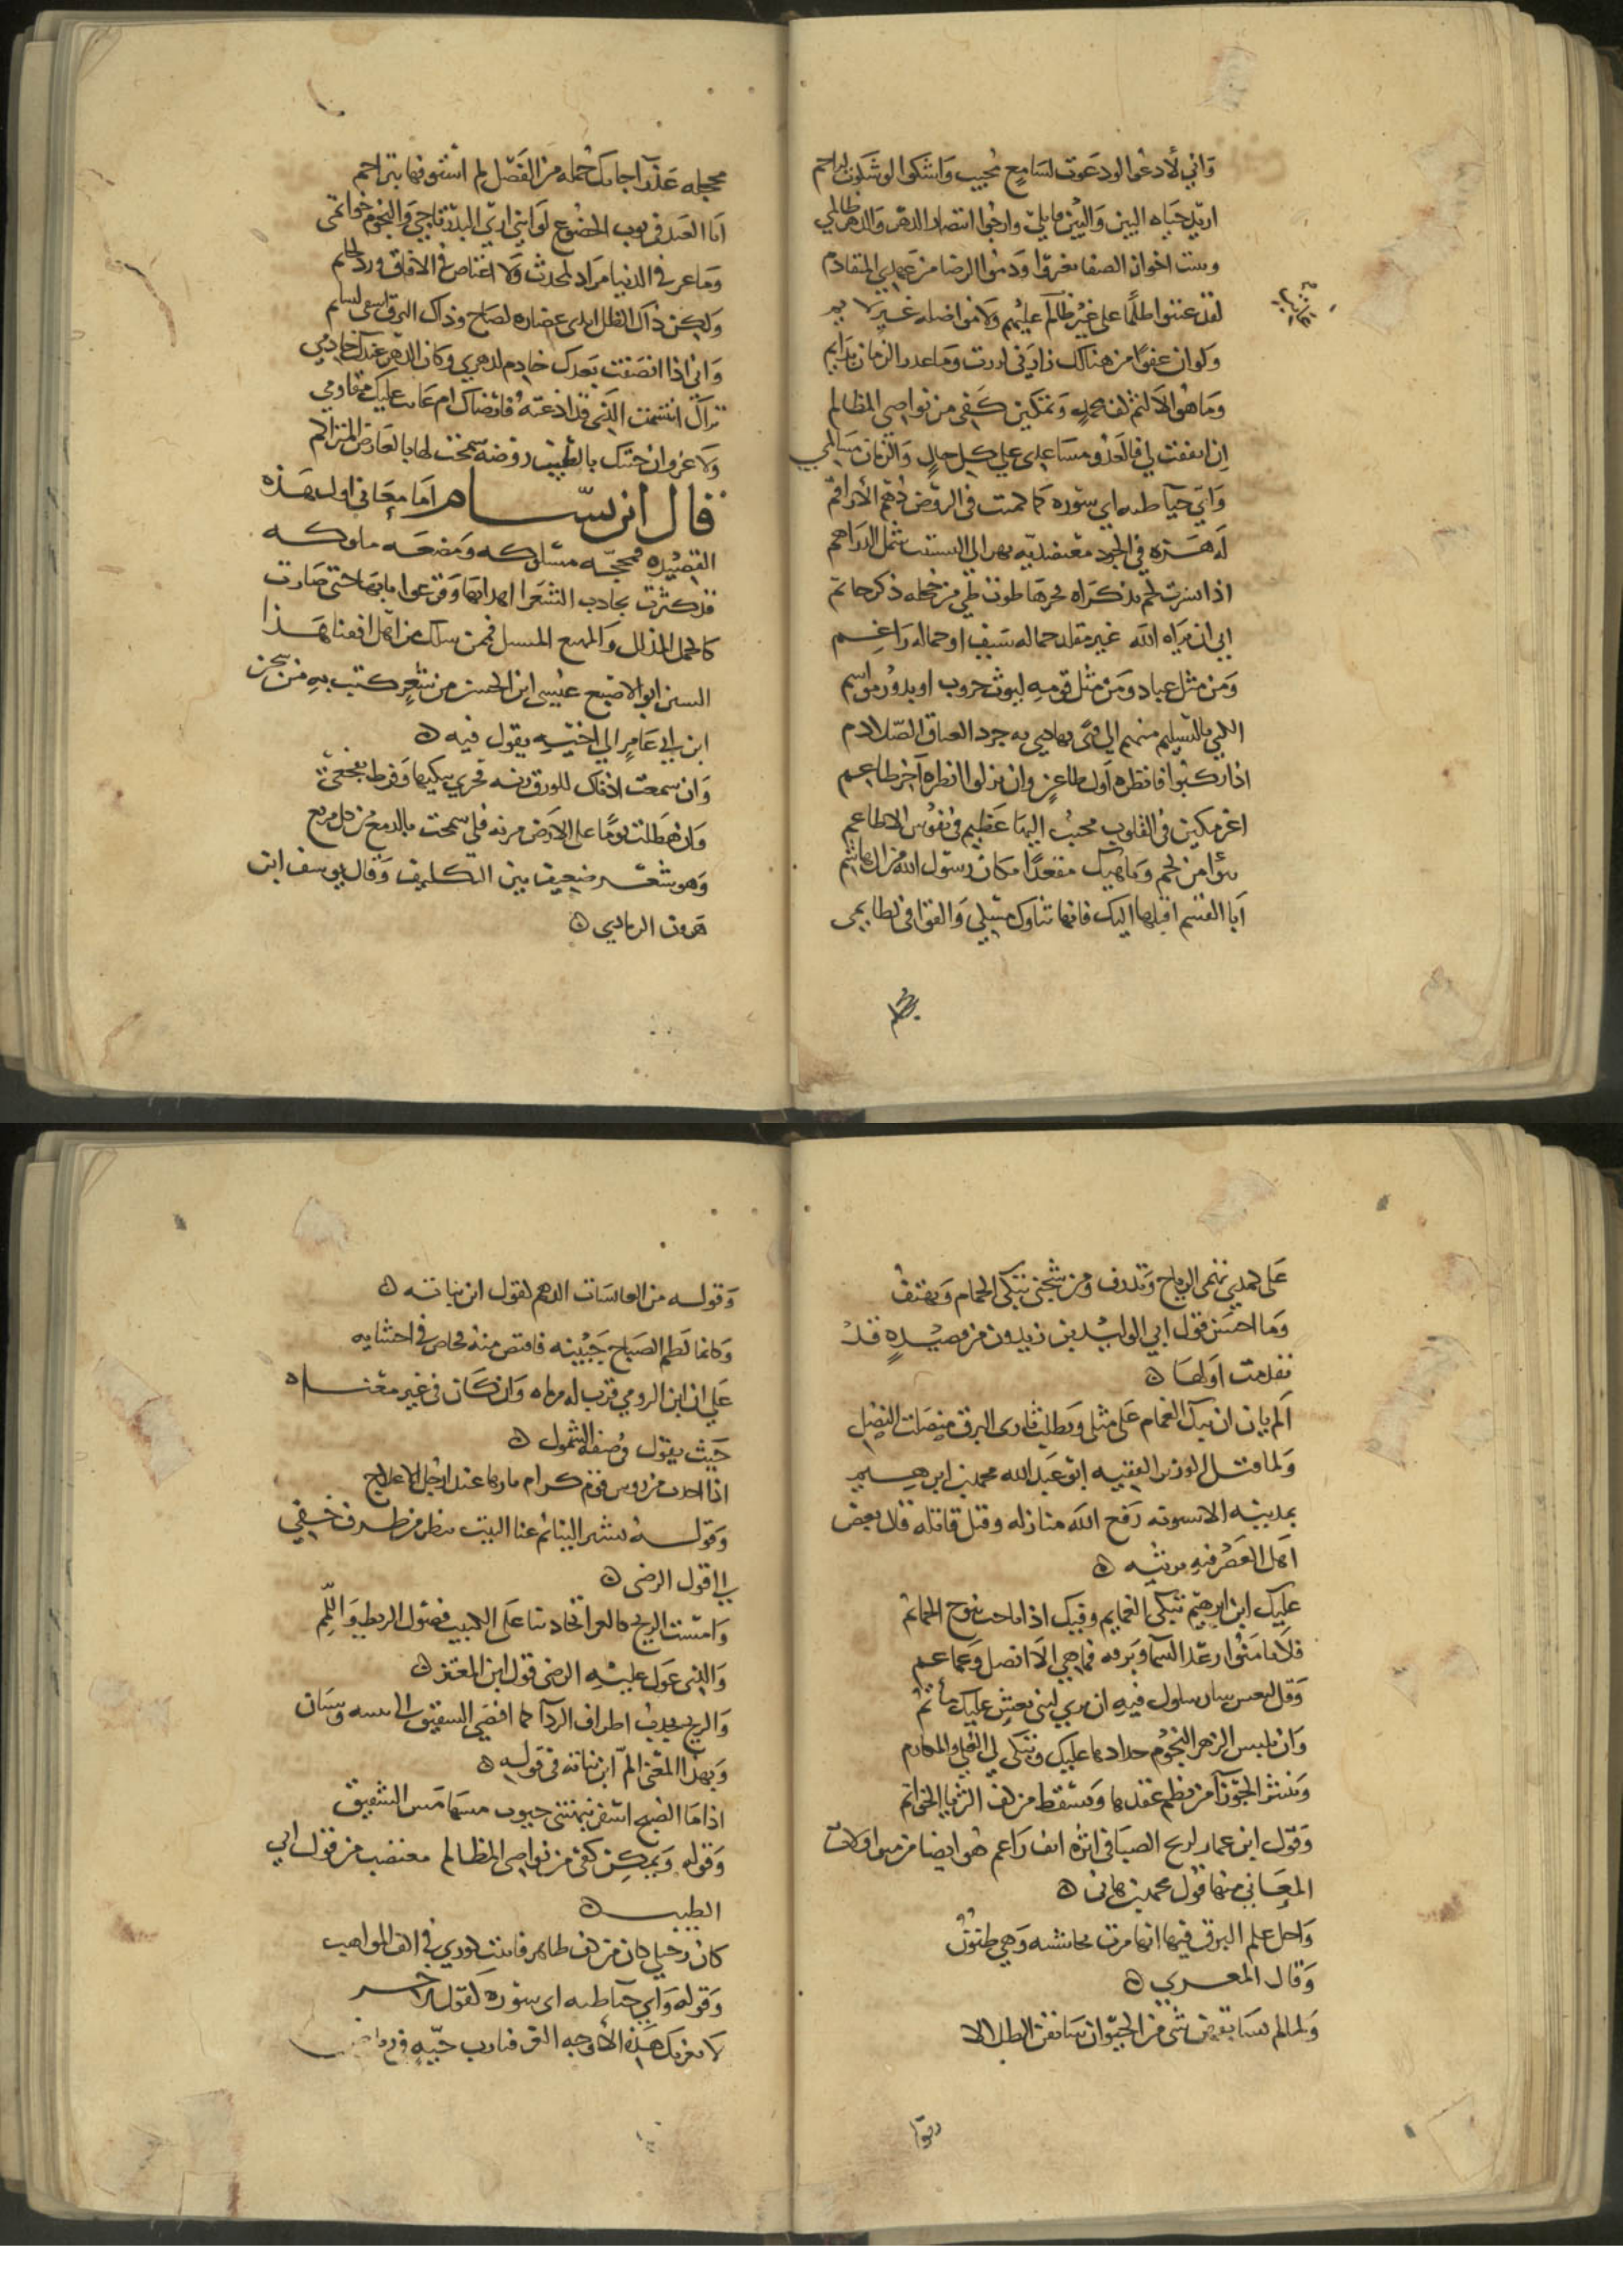 واني لأدعوا لو دعوت لسامع مجيب واشكوا لو شكوت لراحم
اريد حياه البين والبين قاتلي وارجوا انتصار الدهر والدهر ظالمي
اخوان الصفا وذموا الرضا من عهدي المتقادم
لقد عتبوا ظلما على غير ظالم عليهم ولاموا ضله غير لايم
ولو ان عفوا من هنالك زارني
وما هو الا لثم كف محمد وتمكين كفي من نواصي المظالم
ان اتفقت لي فالعدو مساعدي على كل حال والزمان مسالمي
واي حيا طيه اي سوره كما كمنت في الروض دهم الأراقم
له هزه في الجود معتضديه
اذا نشرت لخم بذكراه فخرها طوت طي من خجله ذكر حاتم
ابى ان يراه الله غير مقلد حماله سيف او حماله راغم
ومن مثل عباد ومن مثل قومه ليوث حروب او بدور مواسم
بالتسليم منهم الى فتى به جرد العتاق الصلادم
اذا ركبوا فانظره اول طاعن وان نزلوا انظره آخر طاعم
اغر مكين في القلوب محبب اليها عظيم في نفوس الاعاظم
من لخم وناهيك مقعدا مكان رسول الله من ال هاشم
ابا القسم اقبلها اليك فانها ثناوك مسكي والقوافي لطايمي
محجله
محجله عذرآ جاتك جمله من الفضل لم
انا العبد في ثوب الخضوع لو انني ارى البدر تاجي والنجوم خواتمي
وما عز في الدنيا مراد لمحدث ولا اعتاص في الافاق ورد لحايم
ولكن ذاك الظل لصاح وذاك البرق
واني اذا انصفت بعدك خادم لدهري وكان الدهر عندك خادمي
ام عاب عليك مقاومي
ولا غرو ان حيتك بالطيب روضه سمحت لها بالعارض المتراكم
قال ابن بسام اما معاني اول هذه
القصيده فمحجه مسلوكه ومضغه ملوكه
قد كثرت تجاذب الشعرا اهدابها وقرعوا بابها حتى صارت
كالجمل المذلل والمهيع المسبل فمن سلك من اهل افقنا هذا
السنن ابو الاصبع عيسى ابن الحسن من شعر كتب به من سجن
ابن ابي عامر الى اختيه يقول فيه
وان سمعت اذناك للورق رنه فحزني يبكيها وفرط تفجعي
وان هطلت يوما على الارض مزنه فلي سمحت بالدمع من كل مدمع
وهو شعر ضعيف بين التكليف وقال يوسف ابن
هرون الرمادي
على كمدي تهمي الرياح وتذرف ومن شجني تبكي الحمام وتهتف
وما احسن قول ابي الوليد بن زيدون من قصيده قد
تقدمت اولها
الم يان ان تبكي الغمام على مثلي ويطلب ثاري البرق منصلت النصل
ولما قتل الوزير الفقيه ابو عبد الله محمد بن ابرهيم
بمدينه الاشبونه رفع الله منازله وقتل قاتله قال بعض
اهل العصر فيه يرثيه
عليك ابن ابرهيم تبكي الغمايم وفيك اذا ما حت نوح الحمائم
فلا تأمنوا رعد السما وبرقه فما هي الا انصل وغماغم
وقل لبعس ان يرى لبني نعش عليك مأتم
وان تلبس الزهر النجوم حدادها عليك وتبكي للعلي والمكارم
وتنثر الجوزآ من نظم عقدها وتسقط من كف الثريا الخواتم
وقول ابن عمار لريح الصبا في اثره انف راغم هو ايضا من متداولات
المعاني منها قول محمد بن هاني
واجل علم البرق فيها انها مرت بجانبته وهي ظنون
وقال المعري
ولما لم يسابقهن شي من الحيوان سابقن الظلالا
وقوله
وقوله من العابسات الدهم كقول ابن نباته
وكانما لطم الصباح جبينه فاقتص منه فخاض في احشايه
على ان ابن الرومي قرب له مرماه وان كان في غير معناه
حيث يقول في صفه الشمول
اذا اخذت من روس قوم كرام ثارها عند ارجل الاعلاج
وقوله يشير الينا ثم عنا البيت ينظر من طرف خفي
الى قول الرضى
وامست الريح كالغيرا تجاذبنا على الكثيب فضول الريط واللمم
والذي عول عليه الرضى قول ابن المعتز
والريح تجذب اطراف الردآ كما افضى الشفيق الى وسنان
وبهذا المعنى الم ابن نباته في قوله
اذا ما الصبح اسفر نبهتني جنوب مسها مس الشفيق
وقوله وتمكين كفي من نواصي المظالم مقتضب من قول ابي
الطيب
كان رحيلي كان من كف طاهر فاثبت كوري في الف المواهب
وقوله واي حيا طيه اي سوره كقول الاخر
لا يغرنك هذه الأوجه الغر فيارب حيه في رياض